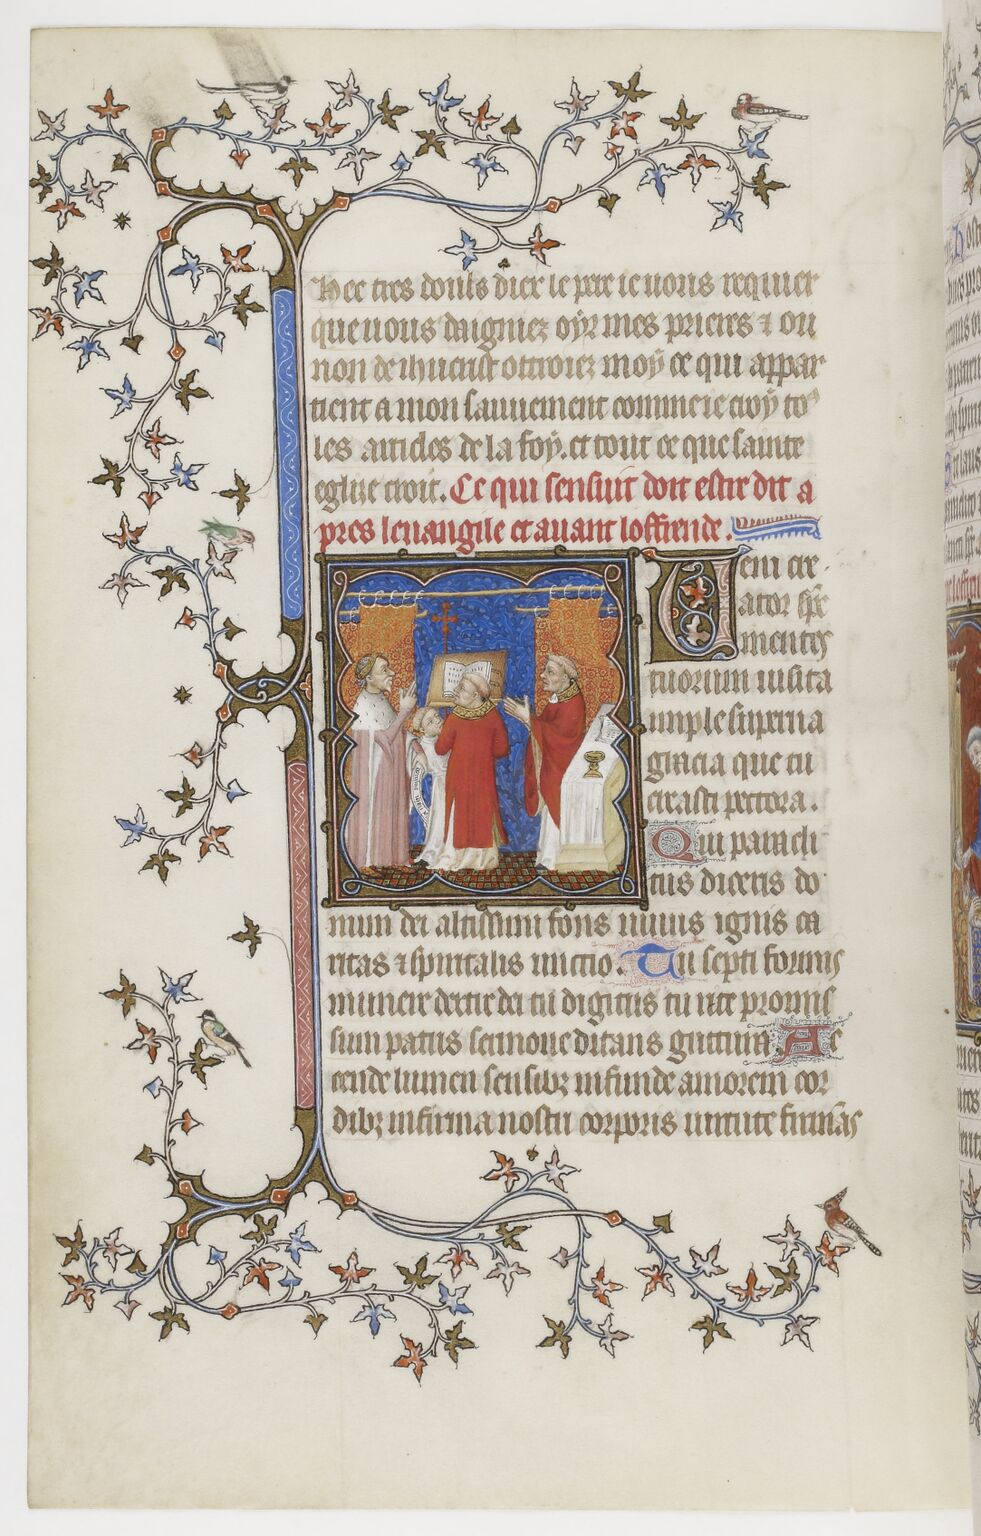 Hee tres douls diex le pere ie uous requier
que uous daigniez oyr mes prieres ⁊ ou
non de ihucrist ottroiez moy ce qui appar
tient a mon sauuement comme ie croy to⁹
les articles de la foy. et tout ce que sainte
eglise croit. Ce qui sensuit doit estre dit a
pres leuangile et auant loffrende.
Ueni cre
ator sp̄c
mentes
tuorum uisita
imple superna
gracia que tu
creasti pectora.
Qui paracli
tus diceris do
num dei altissimi fons uiuus ignis ca
ritas ⁊ spiritalis unctio. Tu septi formis
munere dextre dei tu digitus tu rite promis
sum patris sermone ditans guttura. Ac
cende lumen sensibꝫ infunde amorem cor
dibꝫ infirma nostri corporis uirtute firmās